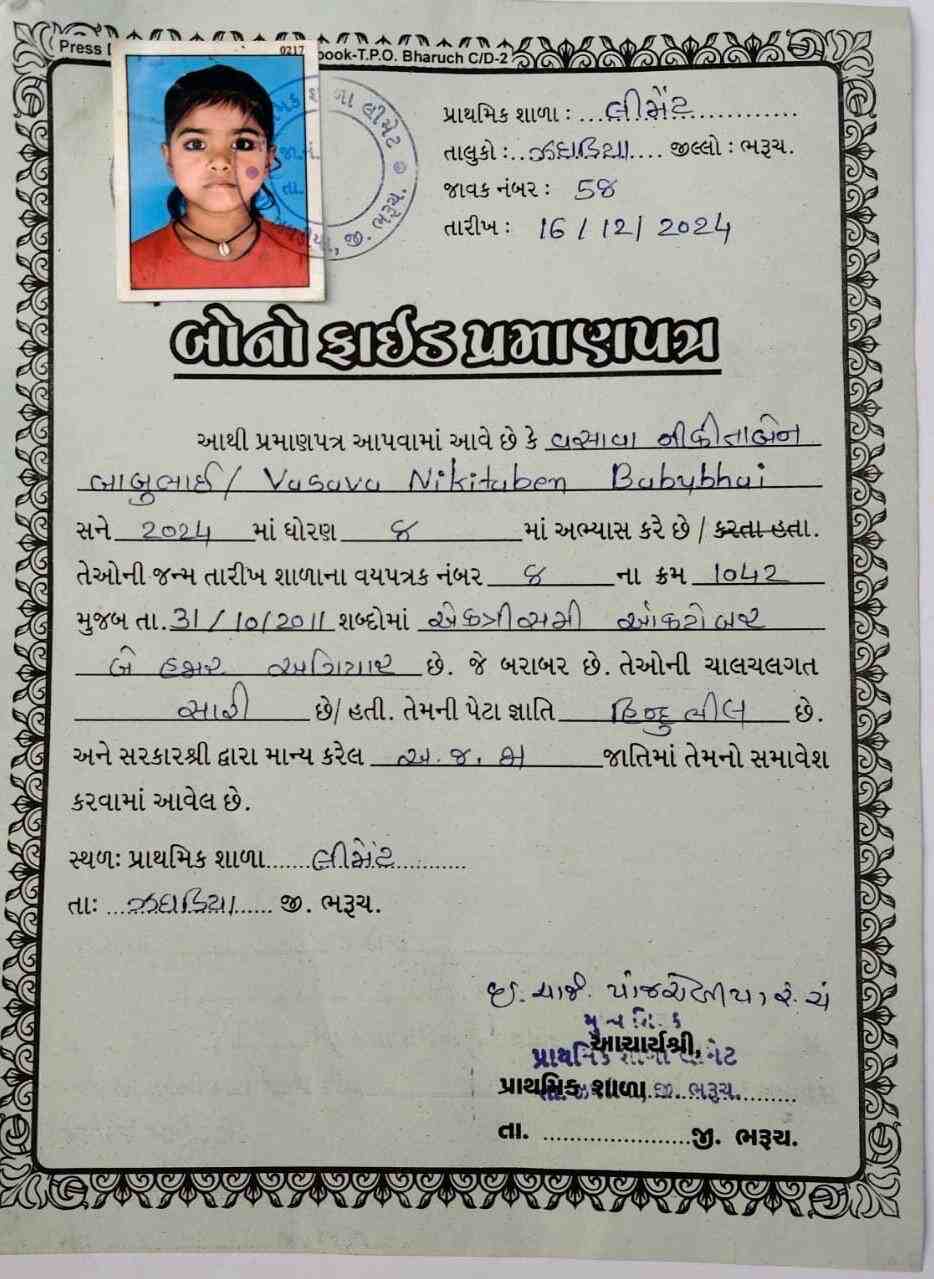 Press
0217
book-T.P.O. Bharuch C/D-2
પ્રાથમિક શાળા : લીમેંટ
તાલુકો : ઝઘડિયા જીલ્લો : ભરૂચ.
જાવક નંબર : 58
તારીખ : 16 / 12 / 2024
બોનો ફાઈડ પ્રમાણપત્ર
આથી પ્રમાણપત્ર આપવામાં આવે છે કે વસાવા નીકીતાબેન
બાબુભાઈ / Vasava Nikitaben Babubhai
સને 2024 માં ધોરણ ૪ માં અભ્યાસ કરે છે / કરતા હતા.
તેઓની જન્મ તારીખ શાળાના વયપત્રક નંબર ૪ ના ક્રમ 1042
મુજબ તા. 31 / 10 / 2011 શબ્દોમાં એકત્રીસમી ઓકટોબર
બે હજાર અગિયાર છે. જે બરાબર છે. તેઓની ચાલચલગત
સારી છે/ હતી. તેમની પેટા જ્ઞાતિ હિન્દુ ભીલ છે.
અને સરકારશ્રી દ્વારા માન્ય કરેલ અ. જ. જા જાતિમાં તેમનો સમાવેશ
કરવામાં આવેલ છે.
સ્થળઃ પ્રાથમિક શાળા લીમેંટ
તાઃ ઝઘડિયા જી. ભરૂચ.
આચાર્યશ્રી,
પ્રાથમિક શાળા જી. ભરૂચ.
તા. જી. ભરૂચ.